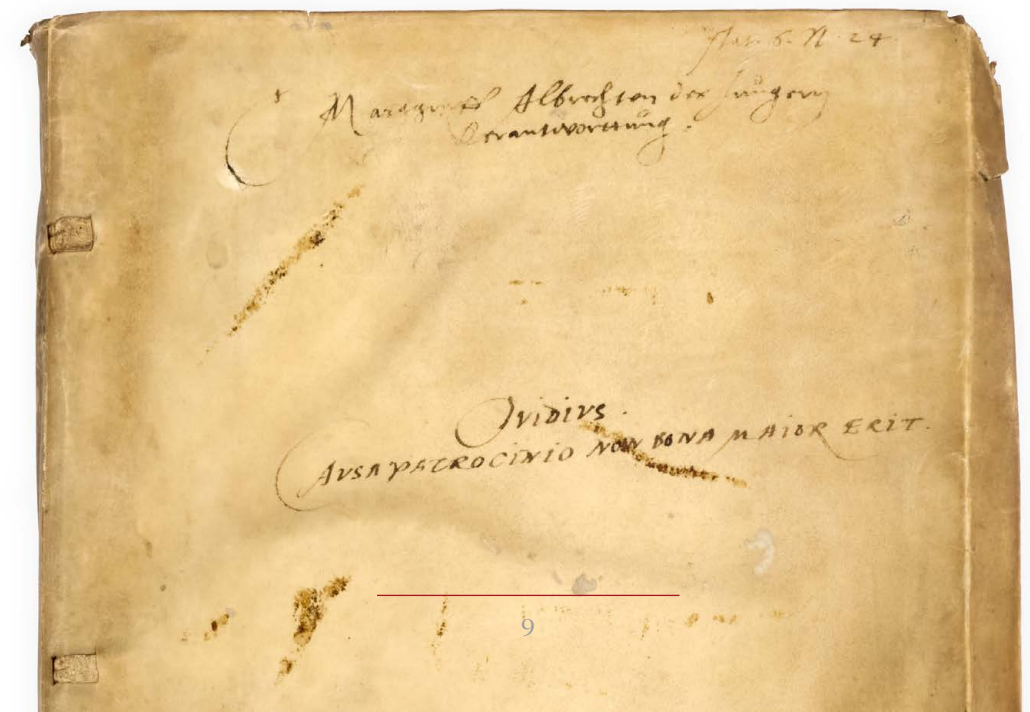 Stat. 6. N. 24
Marggraff Albrechten des Jüngern
Verantworttung.
Ovidivs.
Cavsa patrocinio non bona maior erit.
9